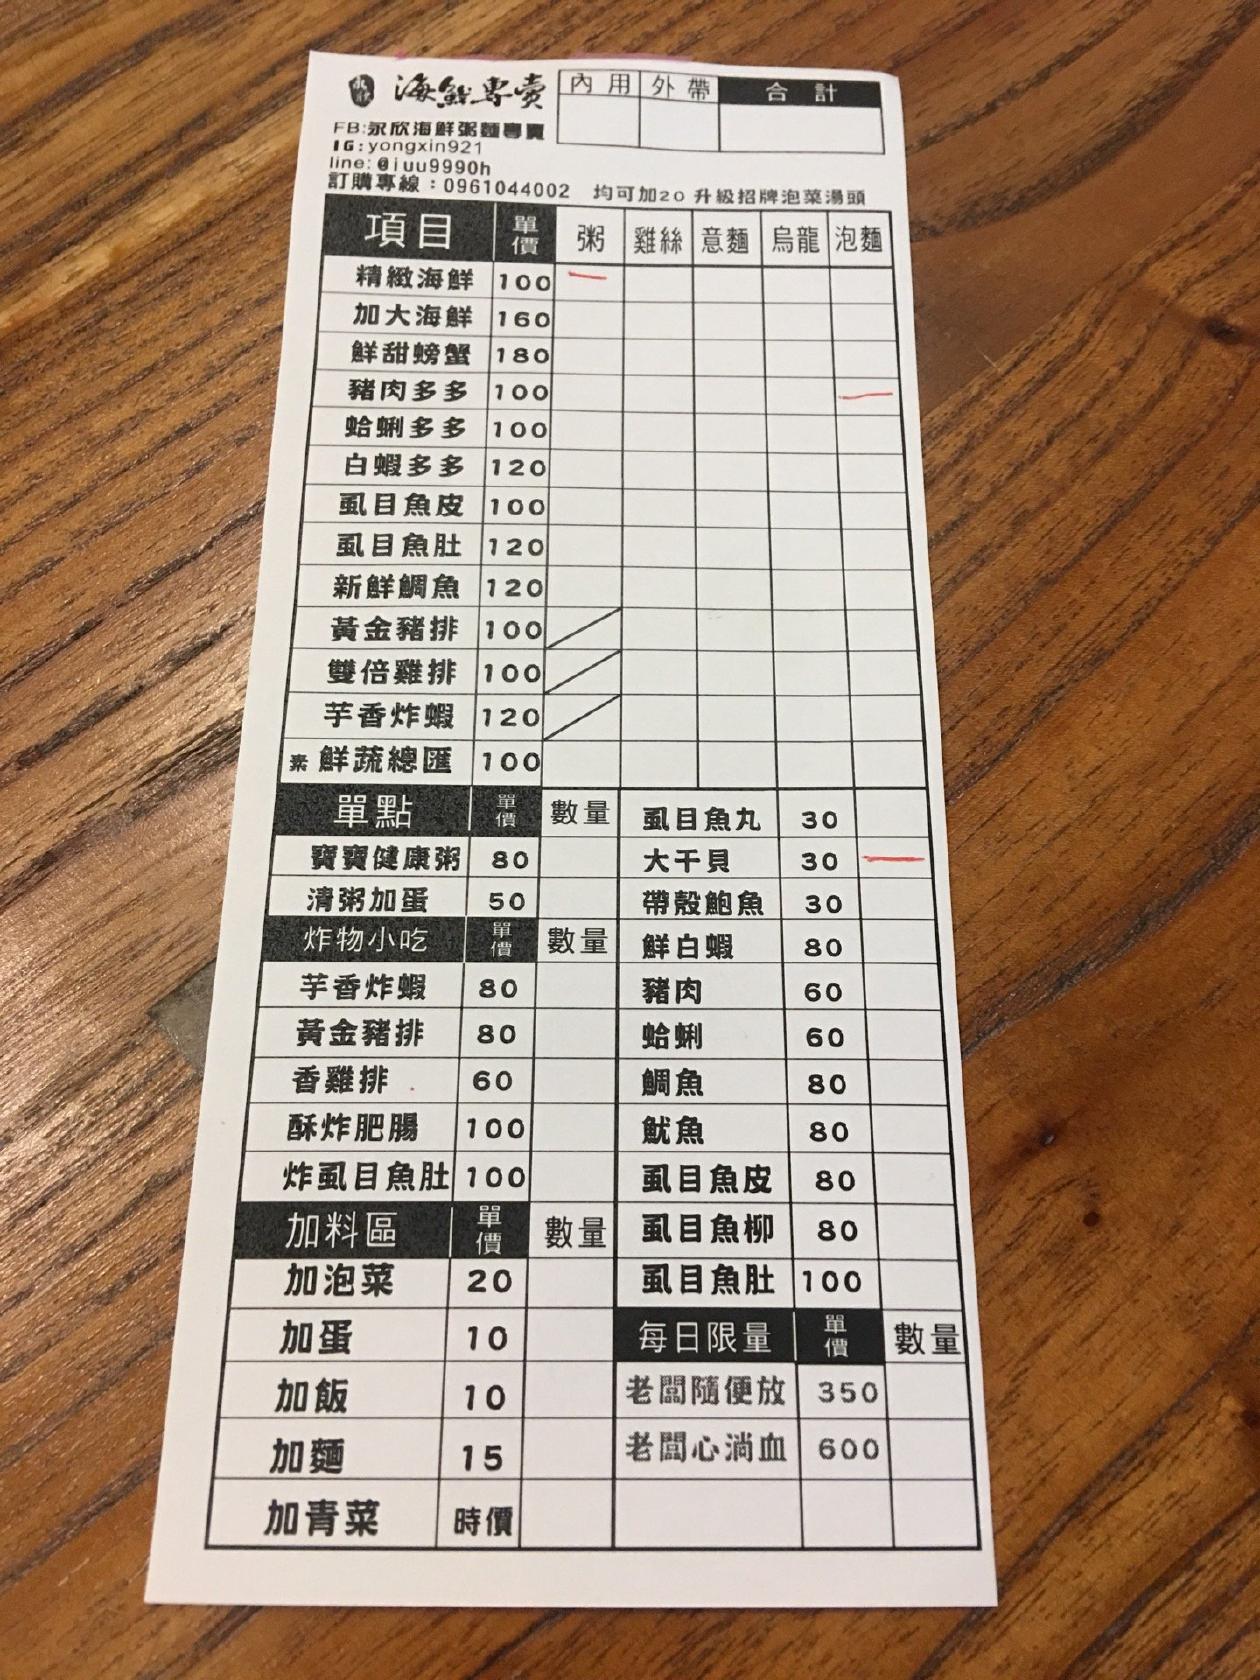 永欣 海鮮專賣 內用 外帶 合計
FB:永欣海鮮粥麵專賣
IG:yongxin921
line:@iuu9990h
訂購專線:0961044002 均可加20 升級招牌泡菜湯頭
項目 單價 粥 雞絲 意麵 烏龍 泡麵
精緻海鮮 100
加大海鮮 160
鮮甜螃蟹 180
豬肉多多 100
蛤蜊多多 100
白蝦多多 120
虱目魚皮 100
虱目魚肚 120
新鮮鯛魚 120
黃金豬排 100
雙倍雞排 100
芋香炸蝦 120
素 鮮蔬總匯 100
單點 單價 數量
寶寶健康粥 80
清粥加蛋 50
炸物小吃 單價 數量
芋香炸蝦 80
黃金豬排 80
香雞排 60
酥炸肥腸 100
炸虱目魚肚 100
加料區 單價 數量
加泡菜 20
加蛋 10
加飯 10
加麵 15
加青菜 時價
虱目魚丸 30
大干貝 30
帶殼鮑魚 30
鮮白蝦 80
豬肉 60
蛤蜊 60
鯛魚 80
魷魚 80
虱目魚皮 80
虱目魚柳 80
虱目魚肚 100
每日限量 單價 數量
老闆隨便放 350
老闆心淌血 600